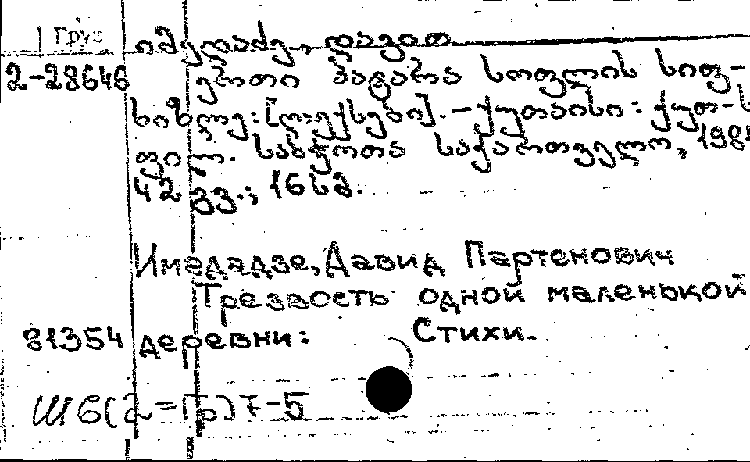 Груз
იმედაძე, დავით
2-28646 ერთი პატარა სოფლის სიფ-
ხიზლე: [ლექსები]. – ქუთაისი: ქუთ-ს
ფილ. საბჭოთა საქართველო, 198
42 გვ.; 16 სმ.
Имедадзе, Давид Партенович
Трезвость одной маленькой
81354 деревни: Стихи.
Ш6(2=Гр)7-5